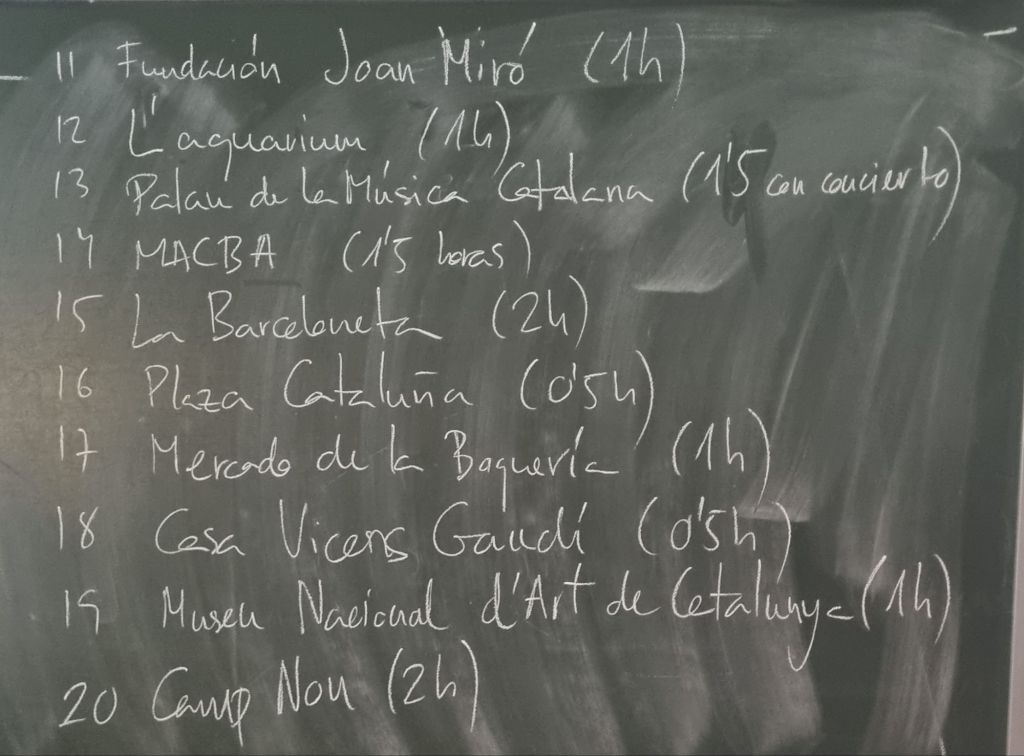 11 Fundación Joan Miró (1h)
12 L'aquarium (1h)
13 Palau de la Música Catalana (1'5 con concierto)
14 MACBA (1'5 horas)
15 La Barceloneta (2h)
16 Plaza Cataluña (0'5h)
17 Mercado de la Boquería (1h)
18 Casa Vicens Gaudí (0'5h)
19 Museu Nacional d'Art de Catalunya (1h)
20 Camp Nou (2h)